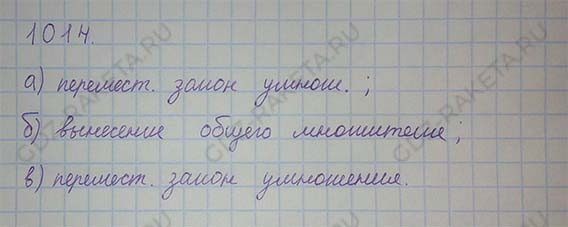 1014.
а) перемест. закон умнож. ;
б) вынесение общего множителя;
в) перемест. закон умножения.
GDZ-RAKETA.RU
GDZ-RAKETA.RU
GDZ-RAKETA.RU